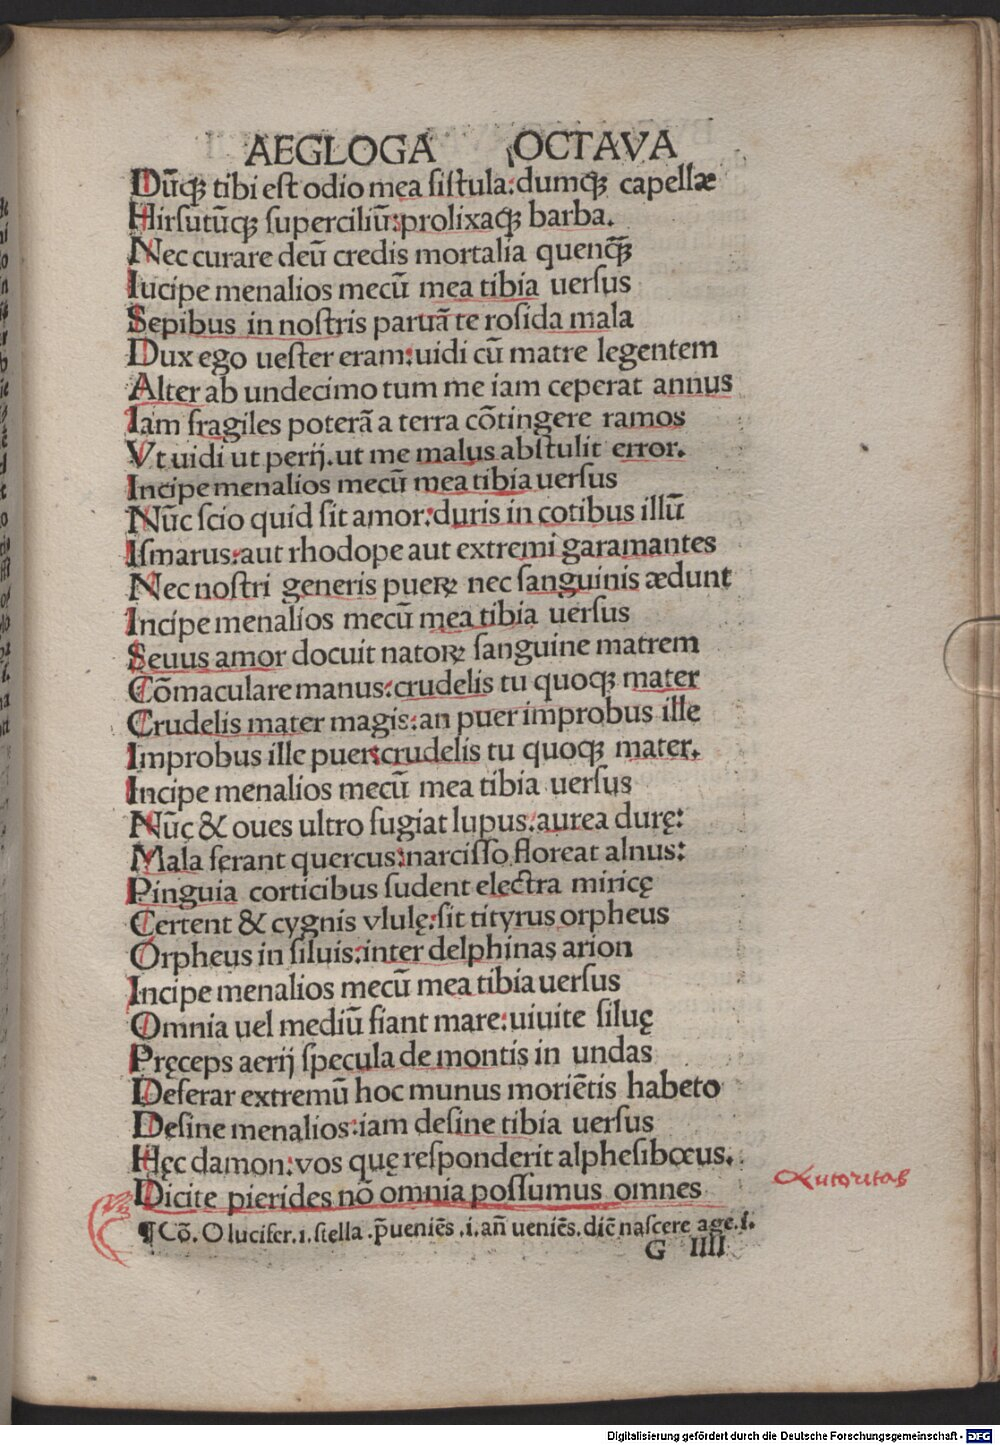 AEGLOGA OCTAVA
Dūq̃ tibi est odio mea fistula: dumq̃ capellæ
Hirsutūq̃ superciliū: prolixaq̃ barba.
Nec curare deū credis mortalia quenq̃
Iucipe menalios mecū mea tibia uersus
Sepibus in nostris paruā te rosida mala
Dux ego uester eram: uidi cū matre legentem
Alter ab undecimo tum me iam ceperat annus
Iam fragiles poterā a terra cōtingere ramos
Vt uidi ut perij. ut me malus abstulit error.
Incipe menalios mecū mea tibia uersus
Nūc scio quid sit amor: duris in cotibus illū
Ismarus: aut rhodope aut extremi garamantes
Nec nostri generis puerꝝ nec sanguinis ædunt
Incipe menalios mecū mea tibia uersus
Seuus amor docuit natorꝝ sanguine matrem
Cōmaculare manus: crudelis tu quoq̃ mater
Crudelis mater magis: an puer improbus ille
Improbus ille puer: crudelis tu quoq̃ mater.
Incipe menalios mecū mea tibia uersus
Nūc & oues ultro fugiat lupus: aurea durę:
Mala ferant quercus: narcisso floreat alnus:
Pinguia corticibus sudent electra miricę
Certent & cygnis vlulę: sit tityrus orpheus
Orpheus in siluis: inter delphinas arion
Incipe menalios mecū mea tibia uersus
Omnia uel mediū fiant mare: uiuite siluę
Pręceps aerij specula de montis in undas
Deferar extremū hoc munus moriētis habeto
Desine menalios: iam desine tibia uersus
Hęc damon: vos quę responderit alphesibœus.
Dicite pierides nō omnia possumus omnes
Autoritas
¶ Cō. O lucifer. i. stella .p̄ueniēs .i. añ ueniēs. diē nascere age. s.
G IIII
Digitalisierung gefördert durch die Deutsche Forschungsgemeinschaft - DFG